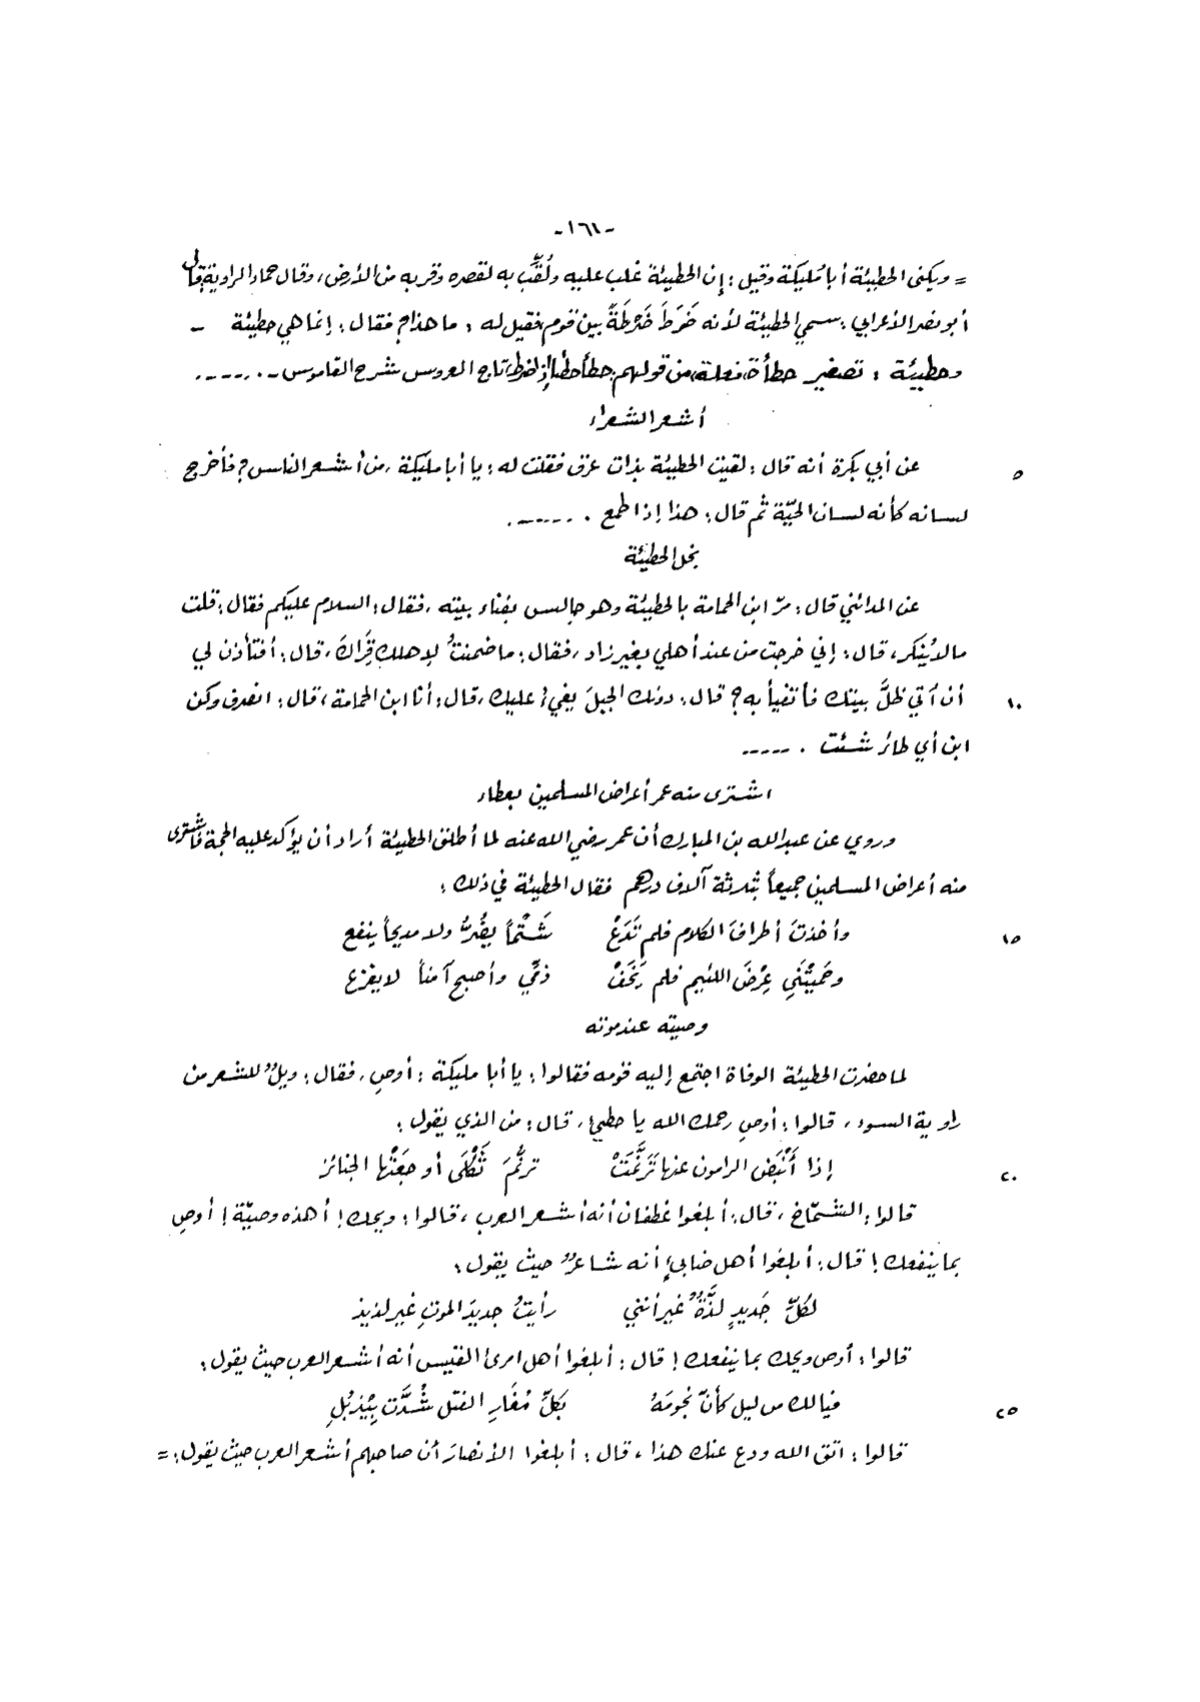 -١٦١-
= ويكنى الحطيئة أبا مُليكة وقيل : إن الحطيئة غلب عليه ولُقّب به لقصره وقربه من الأرض ، وقال حماد الراوية قال لي
أبو نصر الأعرابي : سمي الحطيئة لأنه ضَرَطَ ضَرْطَةً بين قوم فقيل له : ما هذا ؟ فقال : إنما هي حطيئة -
وحطيئة : تصغير حطأة ، فعلة ، من قولهم : حطأ حطأً إذا ضرط ، تاج العروس شرح القاموس - . -----
أشعر الشعراء
عن أبي بكرة أنه قال : لقيت الحطيئة بذات عرق فقلت له : يا أبا مليكة ، من أشعر الناس ؟ فأخرج ٥
لسانه كأنه لسان الحيّة ثم قال : هذا إذا طمع . -----
بخل الحطيئة
عن المدائني قال : مرّ ابن الحمامة بالحطيئة وهو جالس بفناء بيته ، فقال : السلام عليكم فقال : قلت
مالا يُنكر ، قال : إني خرجت من عند أهلي بغير زاد ، فقال : ما ضمنتُ لأهلك قِراكَ ، قال : أفتأذن لي
أن آتي ظلَّ بيتك فأتفيأ به ؟ قال : دونك الجبلَ يفيءُ عليك ، قال : أنا ابن الحمامة ، قال : انصرف وكن ١٠
ابن أي طائر شئت . -----
اشترى منه عمر أعراض المسلمين بعطاء
وروي عن عبدالله بن المبارك أن عمر رضي الله عنه لما أطلق الحطيئة أراد أن يؤكد عليه الحجة فاشترى
منه أعراض المسلمين جميعاً بثلاثة آلاف درهم فقال الحطيئة في ذلك :
وأخذتَ أطرافَ الكلام فلم تَدَعْ شَتْماً يضُرُّ ولا مديحاً ينفع ١٥
وحَمَيْتَني عِرْضَ اللئيم فلم يَخَفْ ذمِّي وأصبح آمناً لا يفزع
وصيته عند موته
لما حضرت الحطيئة الوفاة اجتمع إليه قومه فقالوا : يا أبا مليكة : أوصِ ، فقال : ويلٌ للشعر من
راوية السوء ، قالوا : أوصِ رحمك الله يا حطئ ، قال : من الذي يقول :
إذا أَنْبَضَ الرامون عنها تَرَنَّمَتْ ترنُّمَ ثَكْلَى أوجعَتْها الجنائز ٢٠
قالوا : الشمّاخ ، قال : أبلغوا غطفان أنه أشعر العرب ، قالوا : ويحك ! أهذه وصيّة ! أوصِ
بما ينفعك ! قال : أبلغوا أهل ضابئٍ أنه شاعرٌ حيث يقول :
لكلِّ جَديدٍ لذَّةٌ غير أنني رأيتُ جديدَ الموتِ غير لذيذ
قالوا : أوص ويحك بما ينفعك ! قال : أبلغوا أهل امرئ القيس أنه أشعر العرب حيث يقول :
فيا لك من ليل كأنّ نجومَهُ بكلِّ مُغَارِ الفتل شُدَّت بِيَذْبُلِ ٢٥
قالوا : اتق الله ودع عنك هذا ، قال : أبلغوا الأنصارَ أن صاحبهم أشعر العرب حيث يقول : =